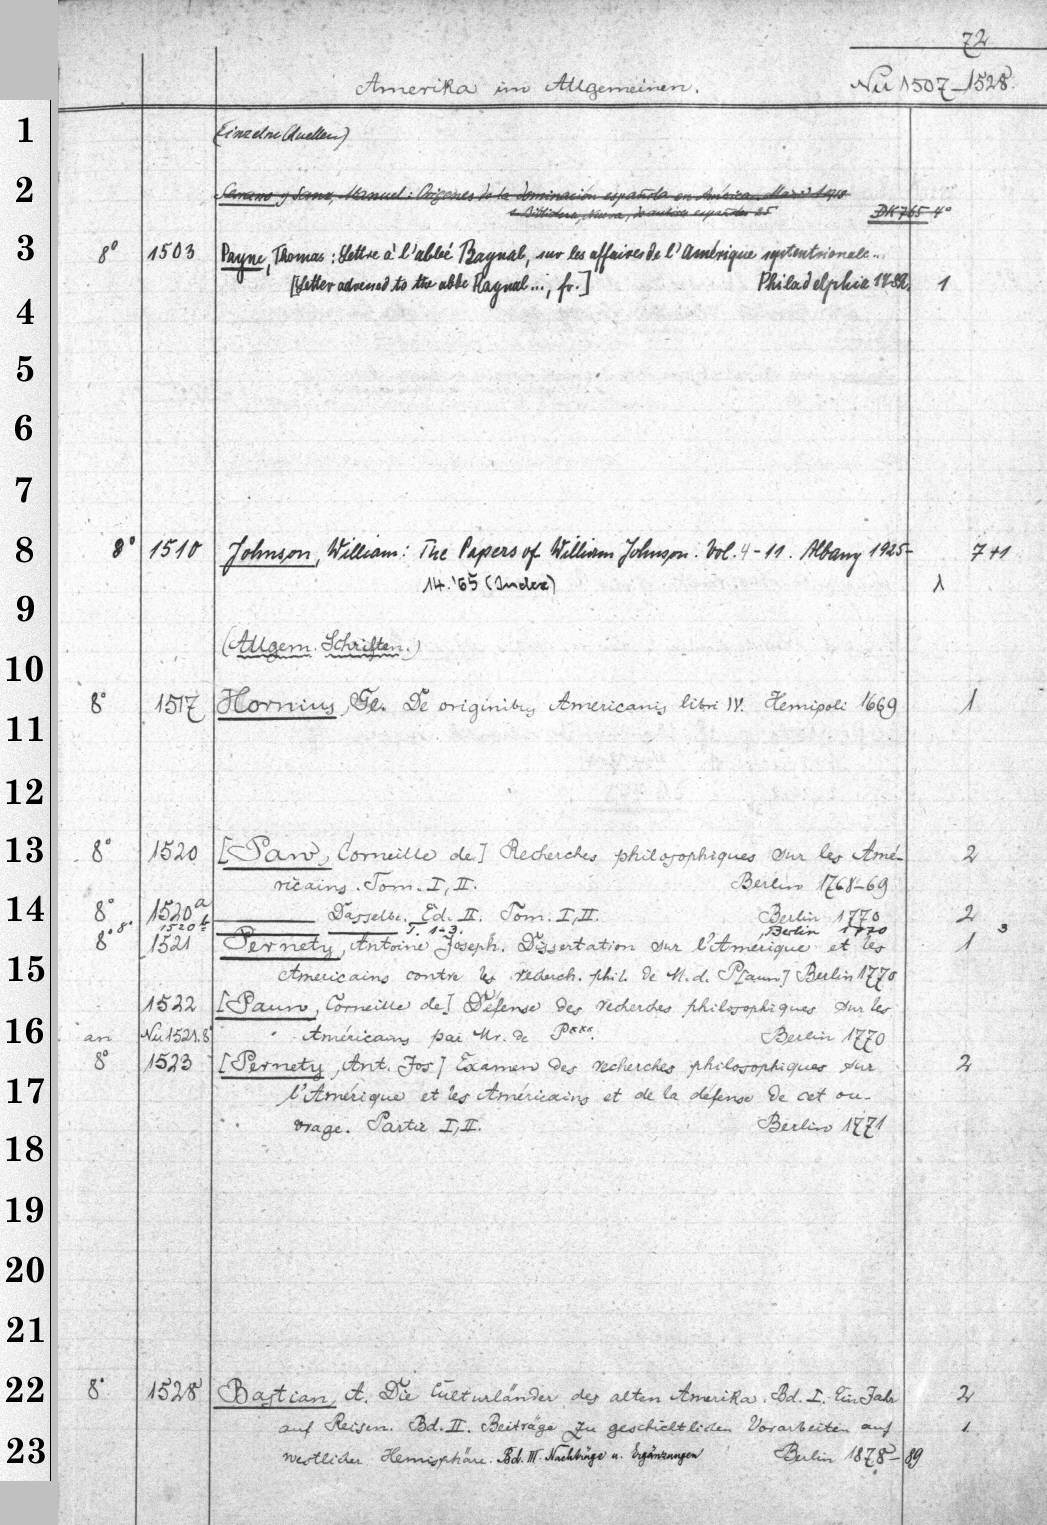 72
Amerika im Allgemeinen. Nu 1507-1528.
1 (Einzelne Quellen)
2 Serrano y Sanz, Manuel: Orígenes de la dominación española en América. Madrid 1918
autores españoles 25 DK 765 4°
3 8° 1503 Payne, Thomas: Lettre à l'abbé Raynal, sur les affaires de l'Amérique septentrionale...
[Letter adressed to the abbé Raynal..., fr.] Philadelphie 1782. 1
4
5
6
7
8 8° 1510 Johnson, William: The Papers of William Johnson. Vol. 4-11. Albany 1925- 7+1
14.'65 (Index) 1
9
(Allgem. Schriften.)
10
8° 1517 Hornius, Ge. De originibus Americanis libri IV. Hemipoli 1669 1
11
12
13 8° 1520 [Pauw, Corneille de] Recherches philosophiques sur les Amé- 2
ricains. Tom. I, II. Berlin 1768-69
14 8° 1520a Dasselbe. Ed. II. Tom. I, II. Berlin 1770 2
8° 1520b T. 1-3. Berlin 1770 3
8° 1521 Pernety, Antoine Joseph. Dissertation sur l'Amérique et les 1
15 Américains contre les recherch. phil. de M. d. P[auw] Berlin 1770
1522 [Pauw, Corneille de] Défense des recherches philosophiques sur les
16 an Nu 1521.8° Américains par Mr. de P***. Berlin 1770
8° 1523 [Pernety, Ant. Jos.] Examen des recherches philosophiques sur 2
17 l'Amérique et les Américains et de la défense de cet ou-
vrage. Partie I, II. Berlin 1771
18
19
20
21
22 8° 1528 Bastian, A. Die Culturländer des alten Amerika. Bd. I. Ein Jahr 2
auf Reisen. Bd. II. Beiträge zu geschichtlichen Vorarbeiten auf 1
23 westlicher Hemisphäre. Bd. III. Nachträge u. Ergänzungen Berlin 1878-89